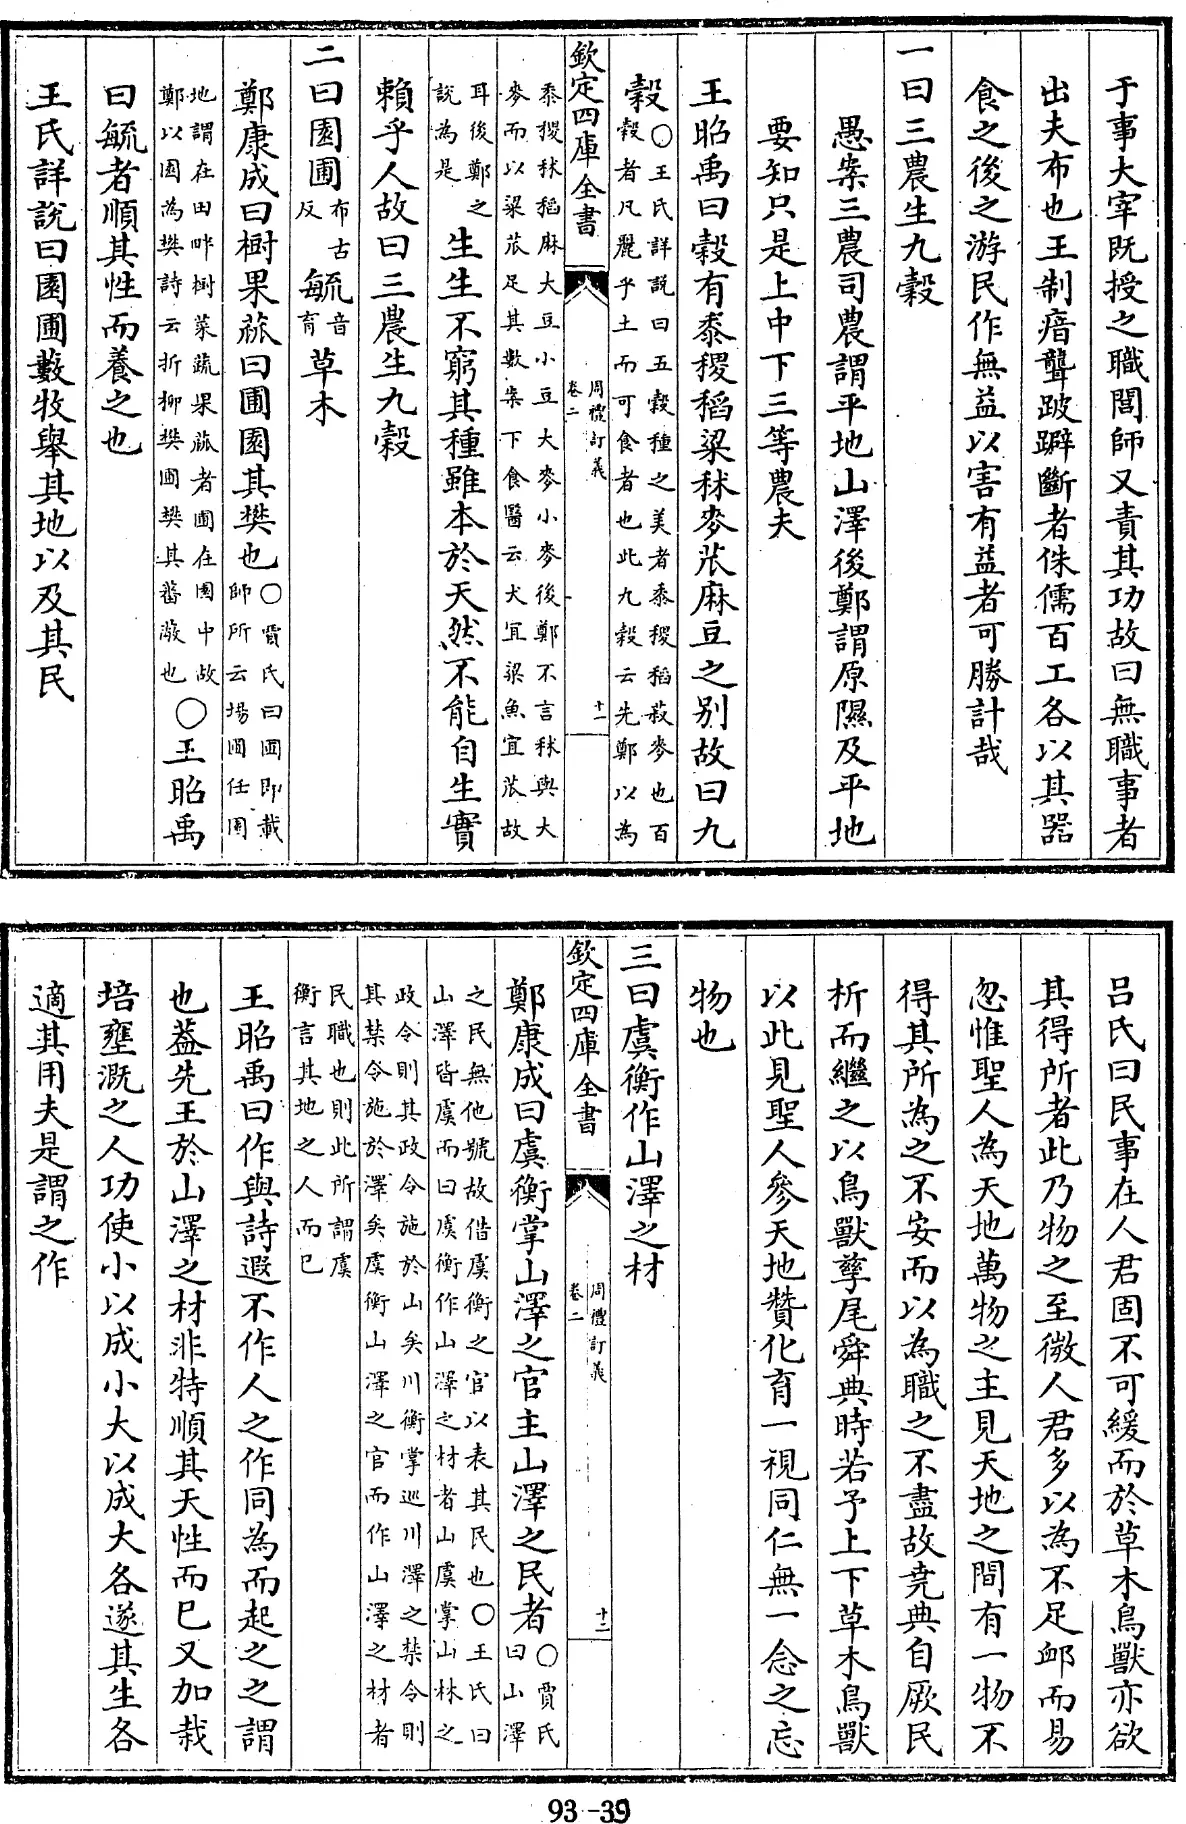 于事大宰既授之職閭師又責其功故曰無職事者
出夫布也王制瘖聾跛躃斷者侏儒百工各以其器
食之後之游民作無益以害有益者可勝計哉
一曰三農生九穀
愚案三農司農謂平地山澤後鄭謂原隰及平地
要知只是上中下三等農夫
王昭禹曰穀有黍稷稻粱秫麥苽麻豆之别故曰九
穀○王氏詳說曰五穀種之美者黍稷稻菽麥也百
穀者凡麗乎土而可食者也此九穀云先鄭以為
欽定四庫全書
周禮訂義
卷二
十一
黍稷秫稻麻大豆小豆大麥小麥後鄭不言秫與大
麥而以粱苽足其數案下食醫云犬宜粱魚宜苽故
耳後鄭之
說為是
生生不窮其種雖本於天然不能自生實
賴乎人故曰三農生九穀
二曰園圃布古反毓音育草木
鄭康成曰樹果蓏曰圃園其樊也○賈氏曰圃即載
師所云場圃任園
地謂在田畔樹菜蔬果蓏者圃在園中故
鄭以園為樊詩云折柳樊圃樊其蕃蔽也○王昭禹
曰毓者順其性而養之也
王氏詳說曰園圃藪牧舉其地以及其民
呂氏曰民事在人君固不可緩而於草木鳥獸亦欲
其得所者此乃物之至微人君多以為不足卹而易
忽惟聖人為天地萬物之主見天地之間有一物不
得其所為之不安而以為職之不盡故堯典自厥民
析而繼之以鳥獸孳尾舜典時若予上下草木鳥獸
以此見聖人參天地贊化育一視同仁無一念之忘
物也
三曰虞衡作山澤之材
欽定四庫全書
周禮訂義
卷二
十二
鄭康成曰虞衡掌山澤之官主山澤之民者○賈氏
曰山澤
之民無他號故借虞衡之官以表其民也○王氏曰
山澤皆虞而曰虞衡作山澤之材者山虞掌山林之
政令則其政令施於山矣川衡掌巡川澤之禁令則
其禁令施於澤矣虞衡山澤之官而作山澤之材者
民職也則此所謂虞
衡言其地之人而已
王昭禹曰作與詩遐不作人之作同為而起之之謂
也葢先王於山澤之材非特順其天性而已又加栽
培壅溉之人功使小以成小大以成大各遂其生各
適其用夫是謂之作
93-39